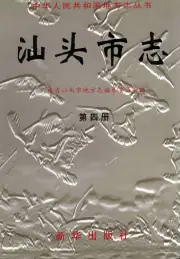 中华人民共和国地方志丛书
汕头市志
广东省汕头市地方志编纂委员会编
第四册
新华出版社